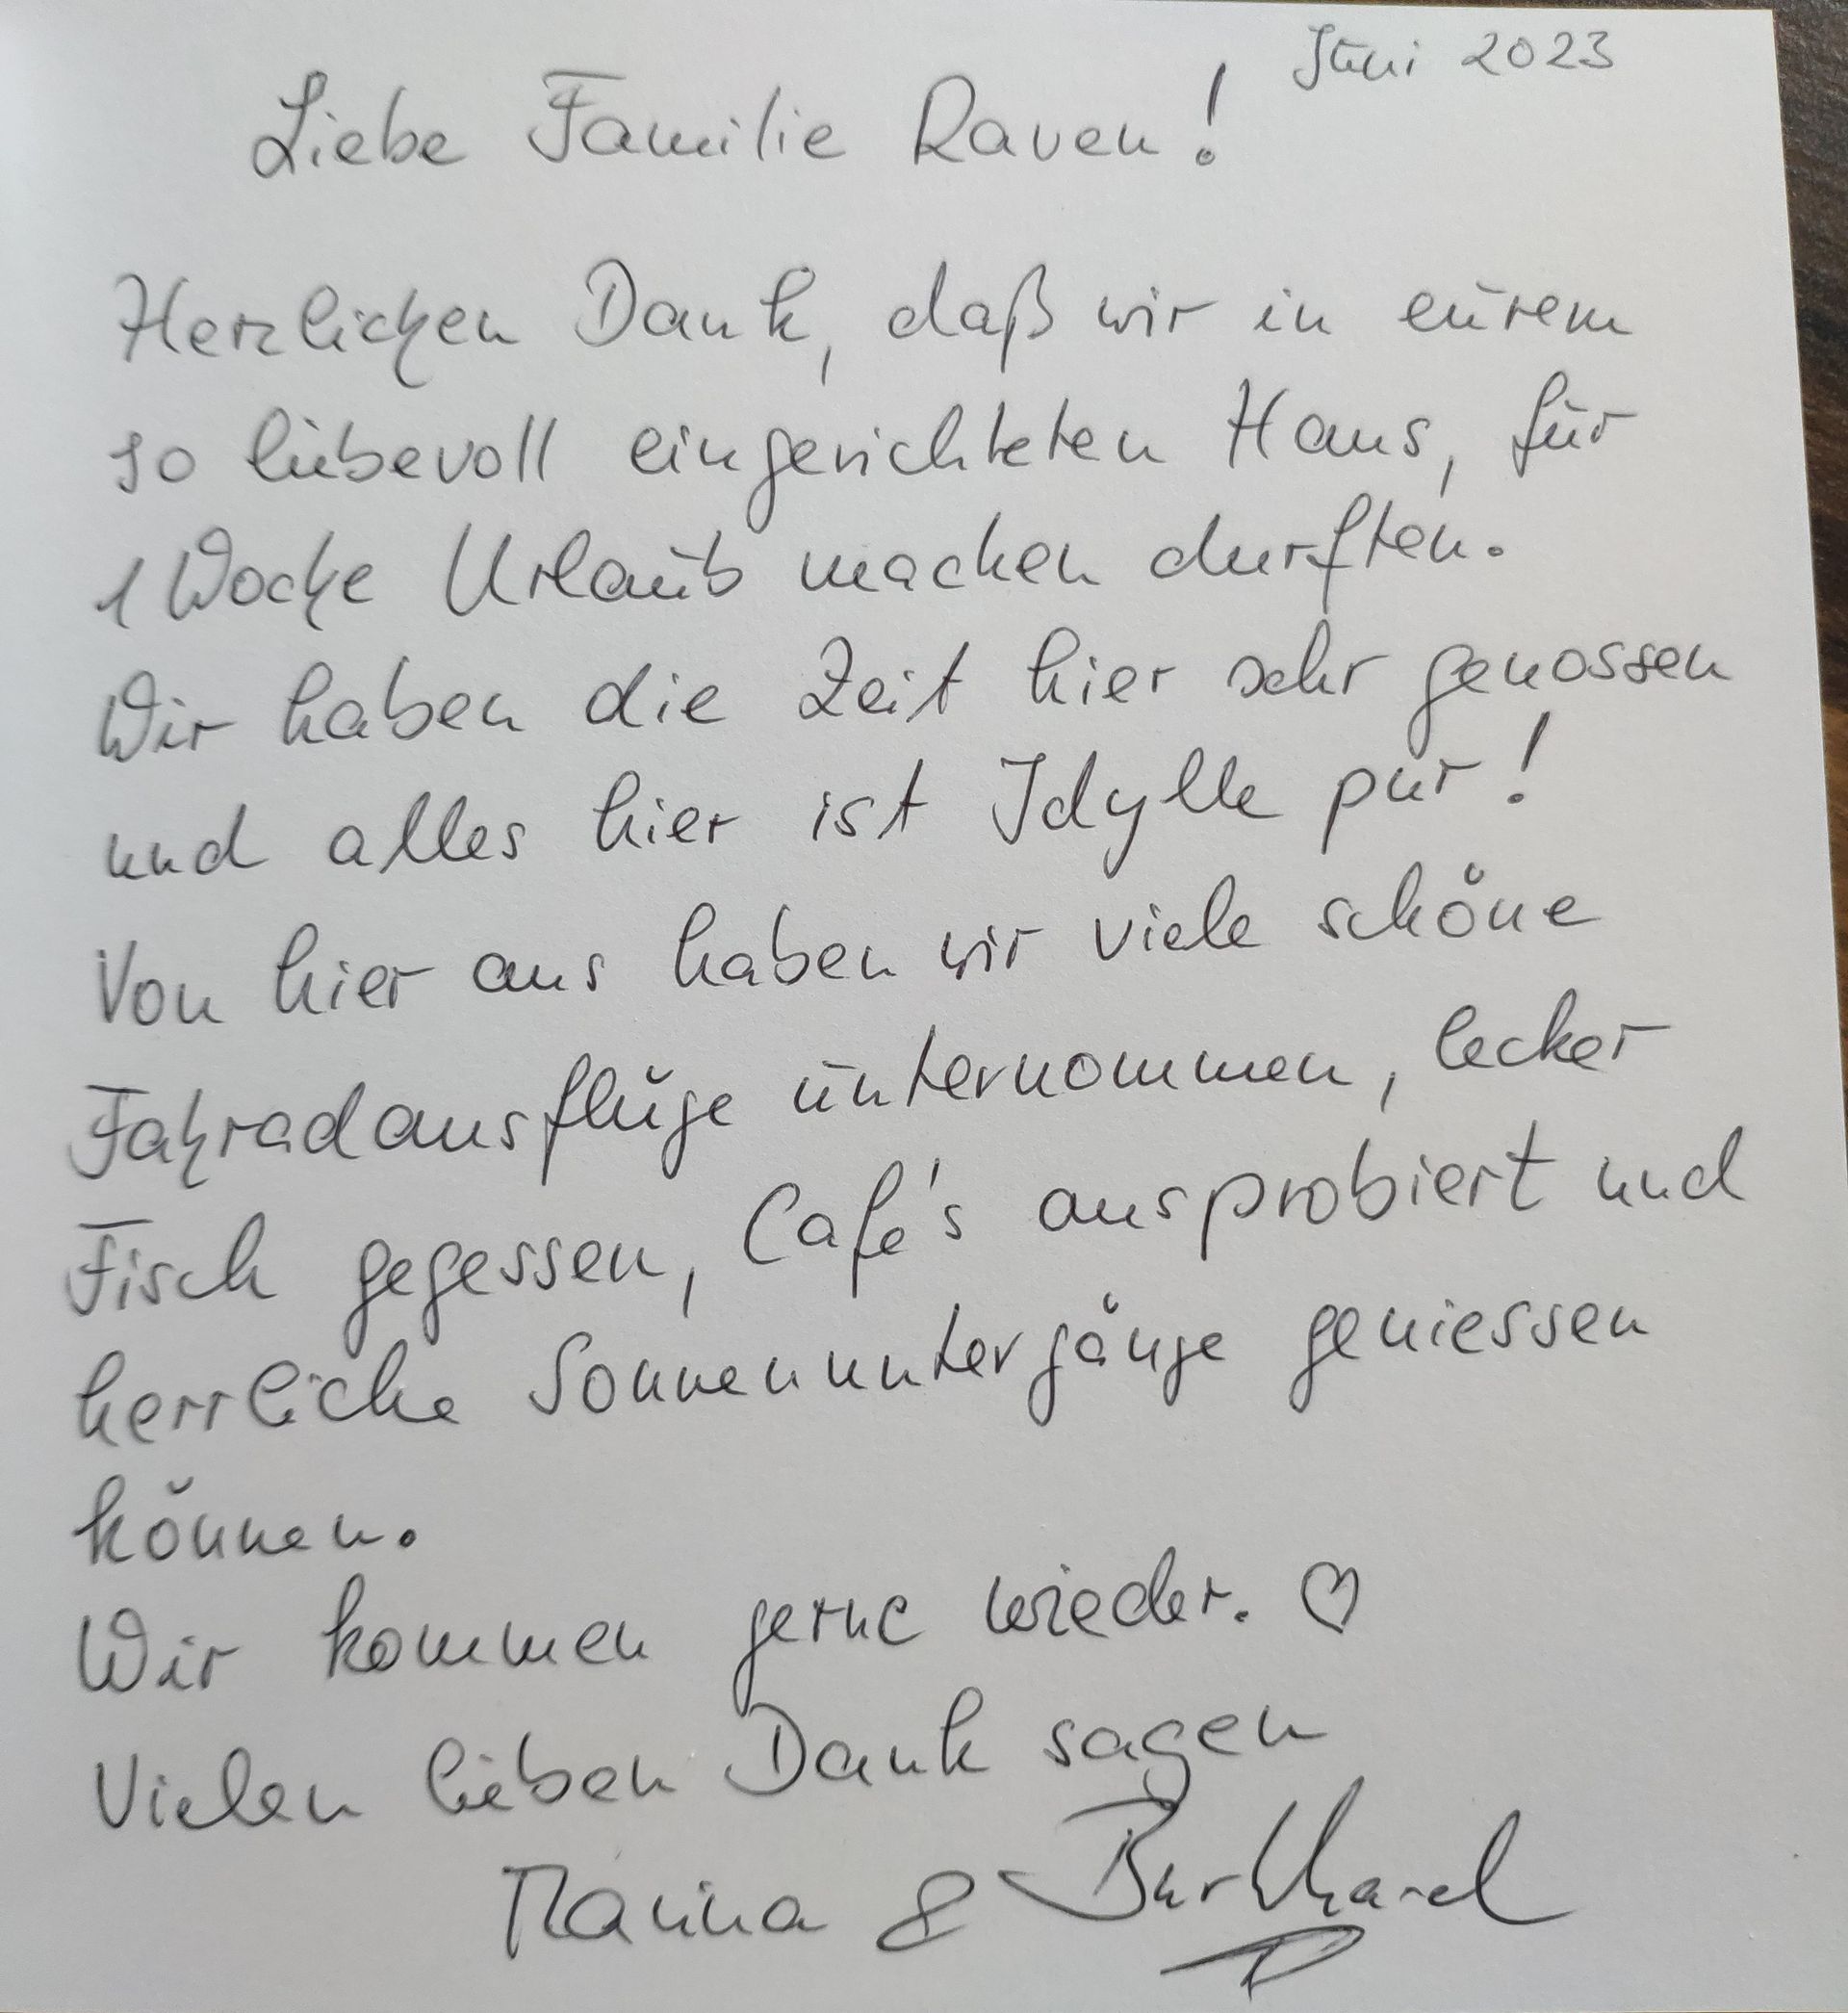 Juni 2023
Liebe Familie Raven!
Herzlichen Dank, daß wir in eurem
so liebevoll eingerichteten Haus, für
1 Woche Urlaub machen durften.
Wir haben die Zeit hier sehr genossen
und alles hier ist Idylle pur!
Von hier aus haben wir viele schöne
Fahrradausflüge unternommen, lecker
Fisch gegessen, Café's ausprobiert und
herrliche Sonnenuntergänge geniessen
können.
Wir kommen gerne wieder. ♡
Vielen lieben Dank sagen
& Burkhard